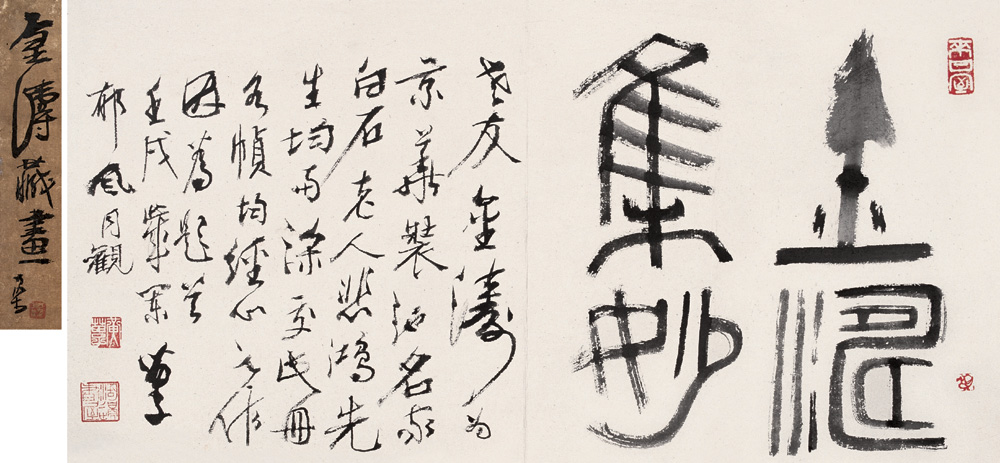 金濤
集妙
老友金濤为
京華裝池名家
白石老人悲鴻先
生均与深交此冊
各幀均經心之作
因為題首
壬戌歲闌 苗子
郁風同觀
金濤藏畫 苗子